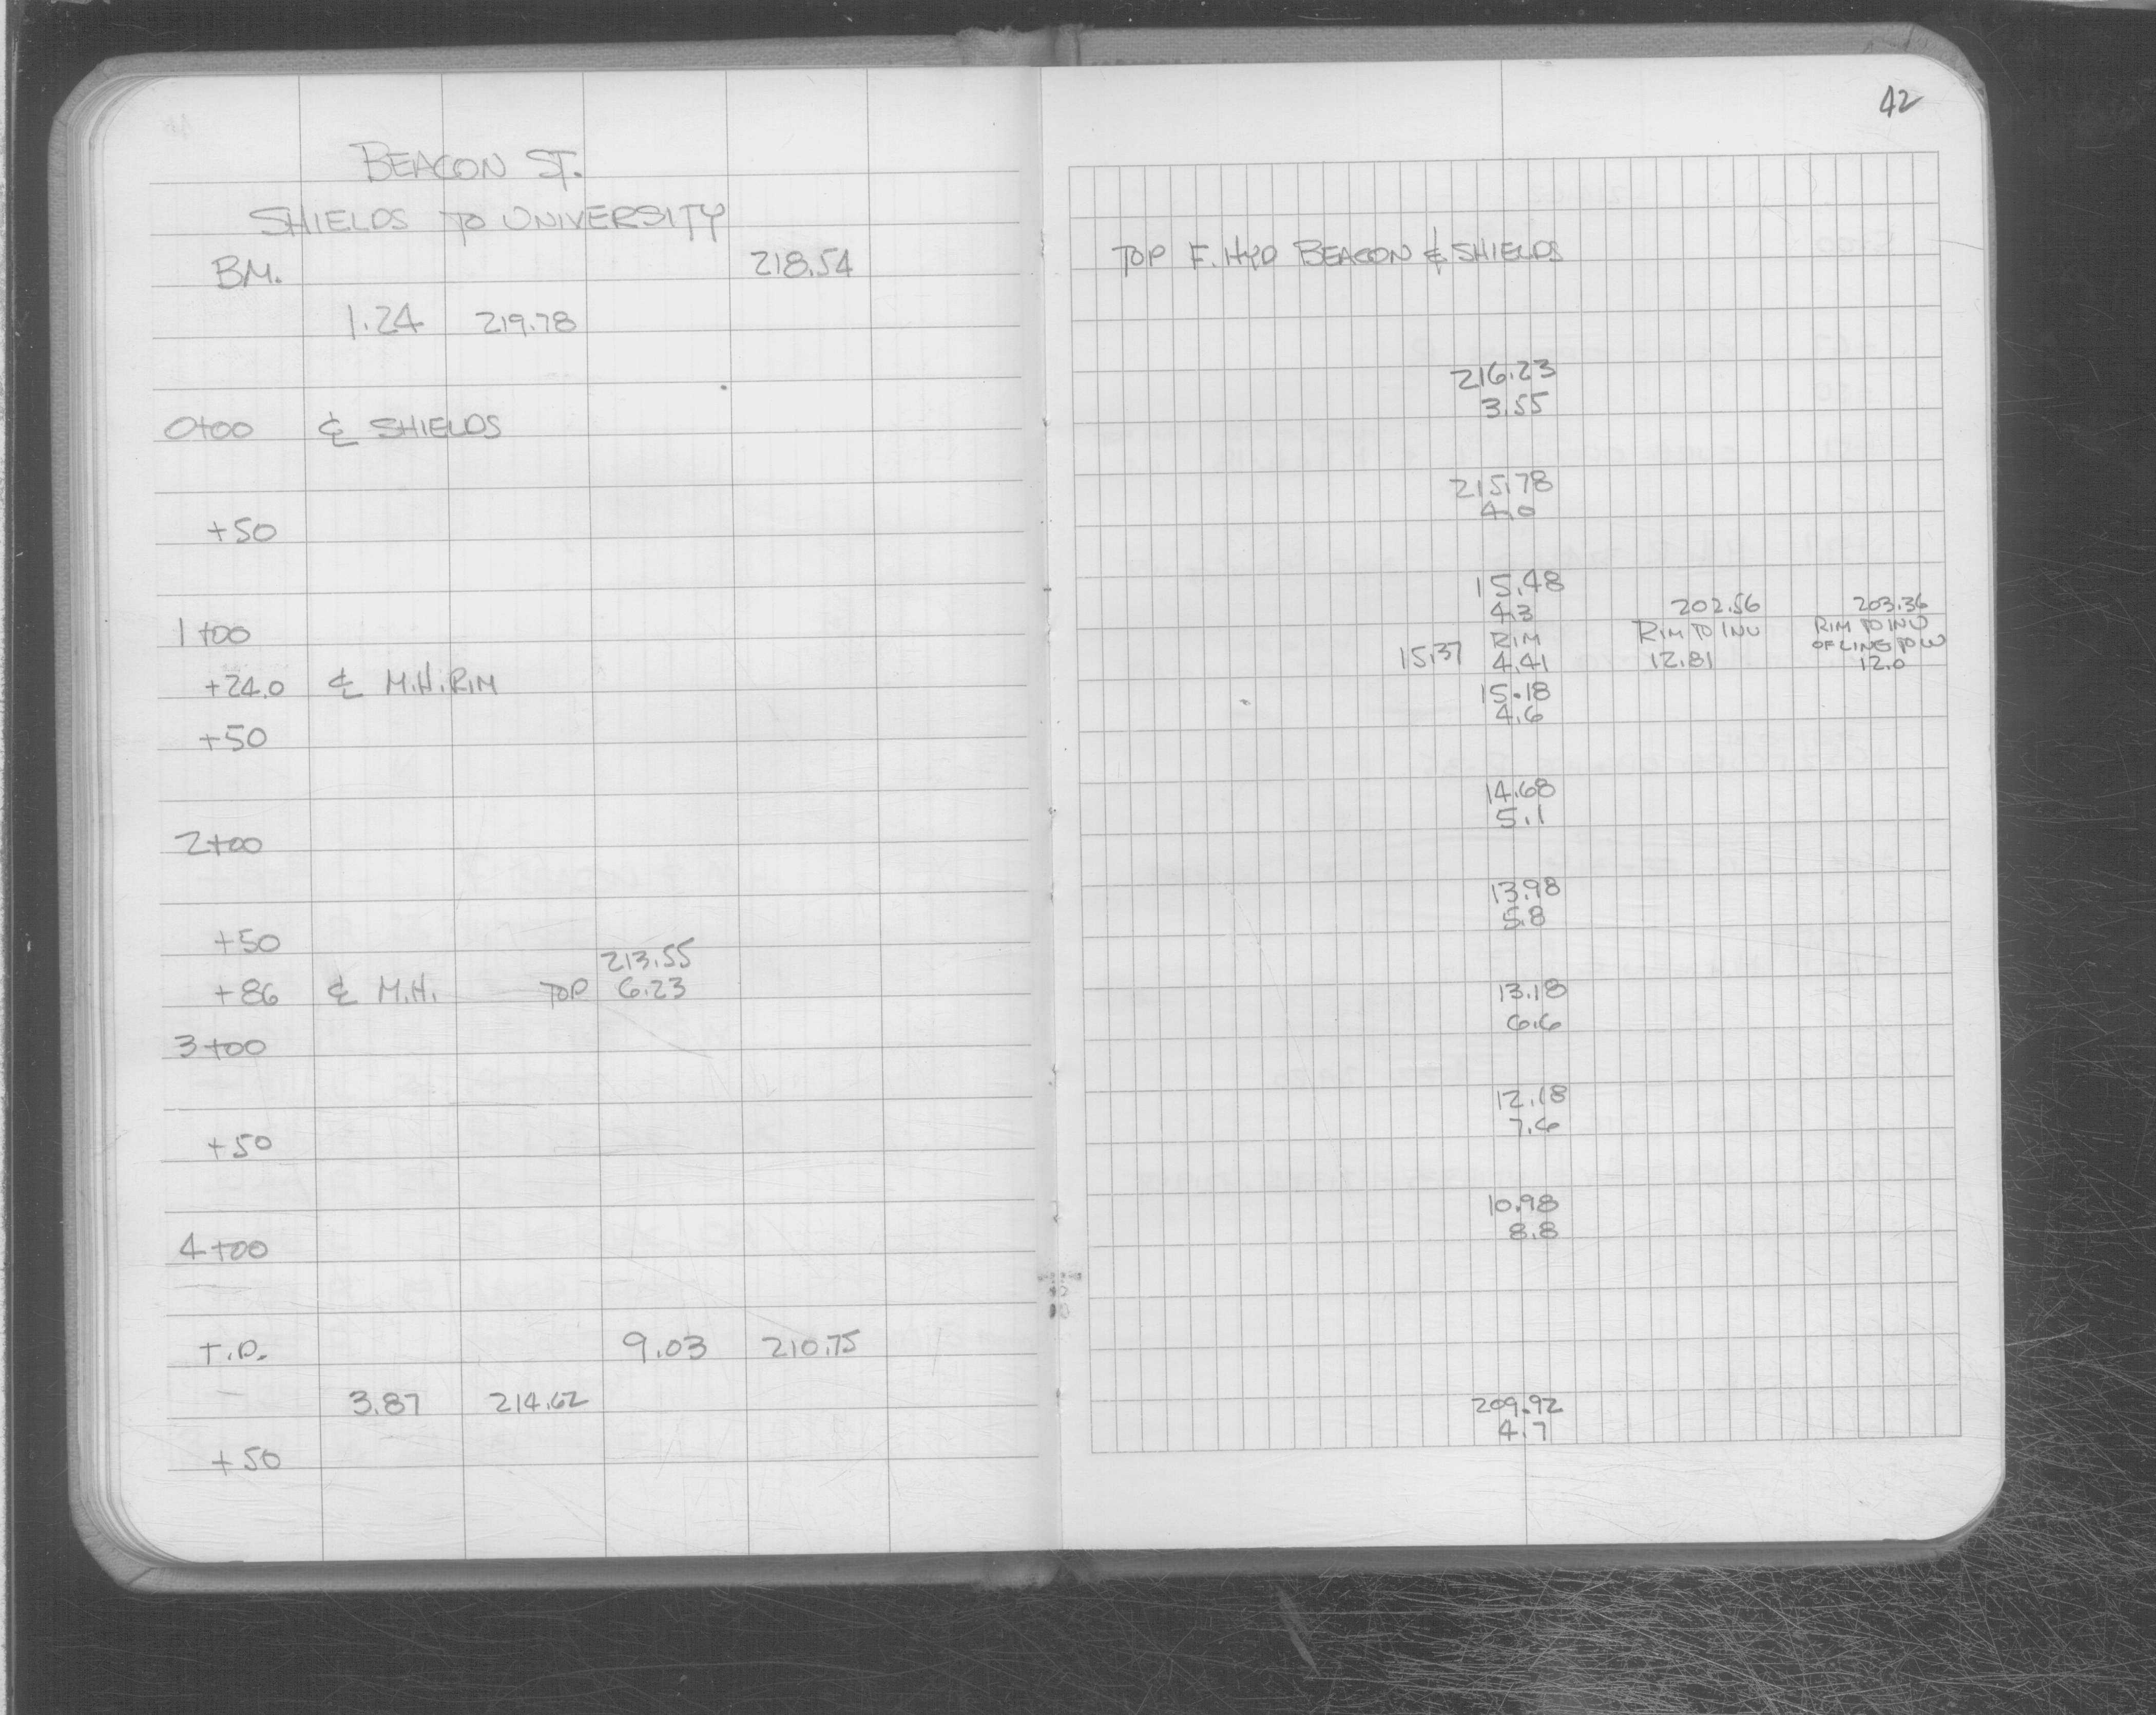 42
BEACON ST.
SHIELDS TO UNIVERSITY
BM. 218.54 TOP F. HYD BEACON & SHIELDS
1.24 219.78
216.23
0+00 ℄ SHIELDS 3.55
215.78
+50 4.0
15.48
1+00 4.3 202.56 203.36
RIM RIM TO INV RIM TO INV
OF LINE TO W
+24.0 ℄ M.H. RIM 15.37 4.41 12.81 12.0
15.18
+50 4.6
14.68
2+00 5.1
13.98
+50 5.8
213.55
+86 ℄ M.H. TOP 6.23
13.18
3+00 6.6
12.18
+50 7.6
10.98
4+00 8.8
T.P. 9.03 210.75
3.87 214.62
209.92
+50 4.7